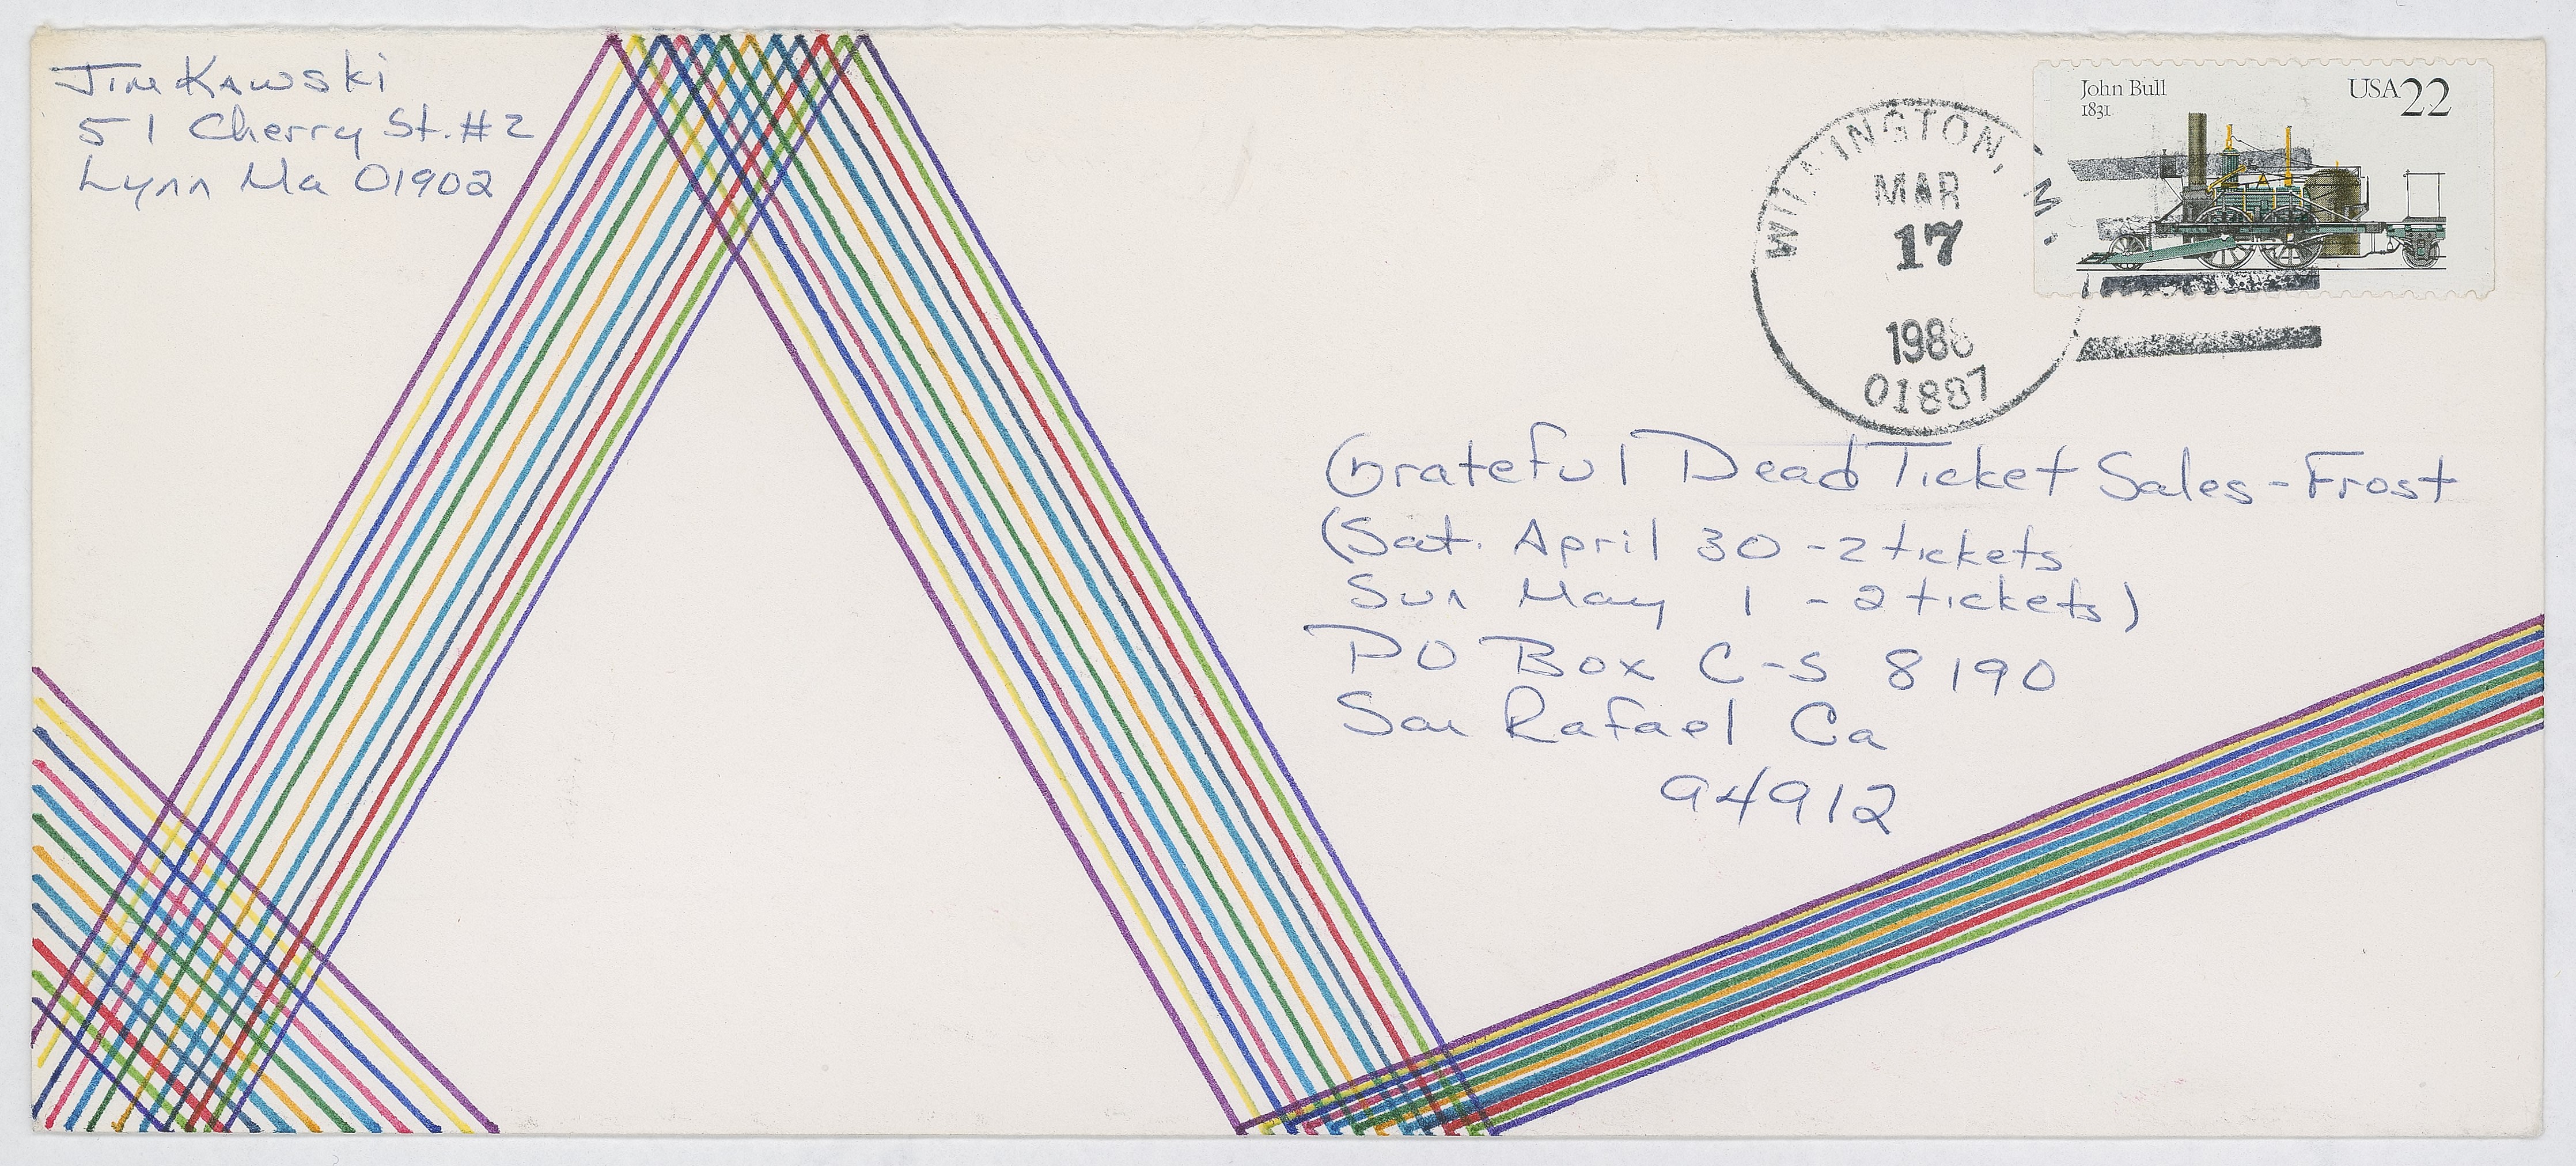 Jim Kawski
51 Cherry St. #2
Lynn Ma 01902
John Bull
1831
USA 22
WILMINGTON, M
MAR
17
1988
01887
Grateful Dead Ticket Sales - Frost
(Sat. April 30 - 2 tickets
Sun May 1 - 2 tickets)
PO Box C-S 8190
San Rafael Ca
94912